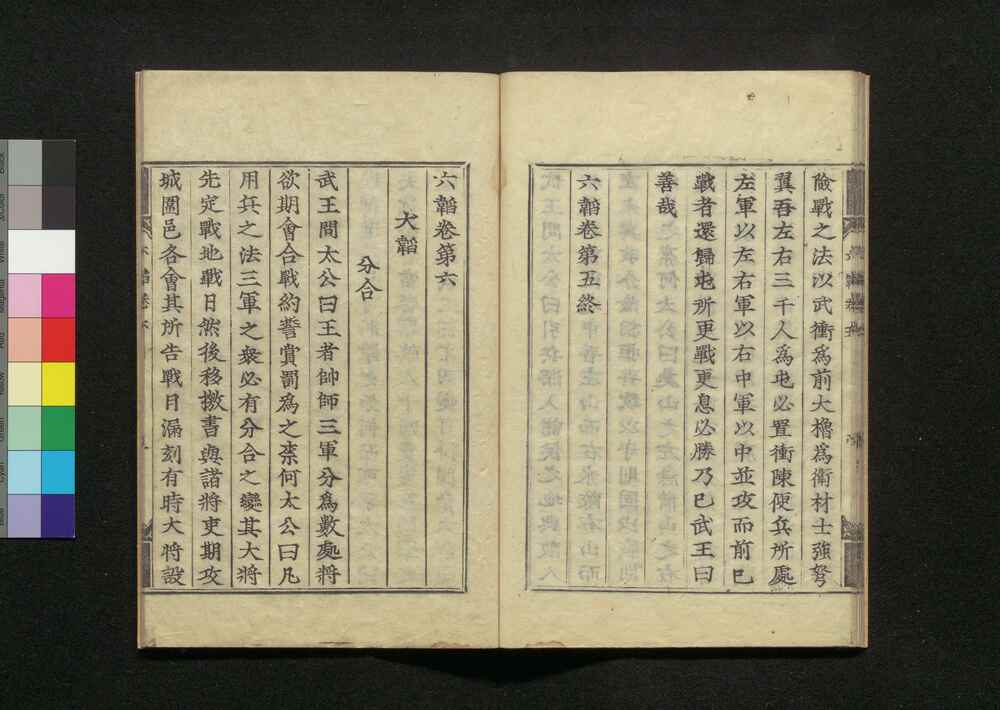 險戰之法以武衝爲前大櫓爲衛材士強弩
翼吾左右三千人爲屯必置衝陳便兵所處
左軍以左右軍以右中軍以中並攻而前已
戰者還歸屯所更戰更息必勝乃已武王曰
善哉
六韜卷第五終
六韜卷第六
犬韜
分合
武王問太公曰王者帥師三軍分爲數處將
欲期會合戰約誓賞罰爲之柰何太公曰凡
用兵之法三軍之衆必有分合之變其大將
先定戰地戰日然後移檄書與諸將吏期攻
城圍邑各會其所告戰日漏刻有時大將設